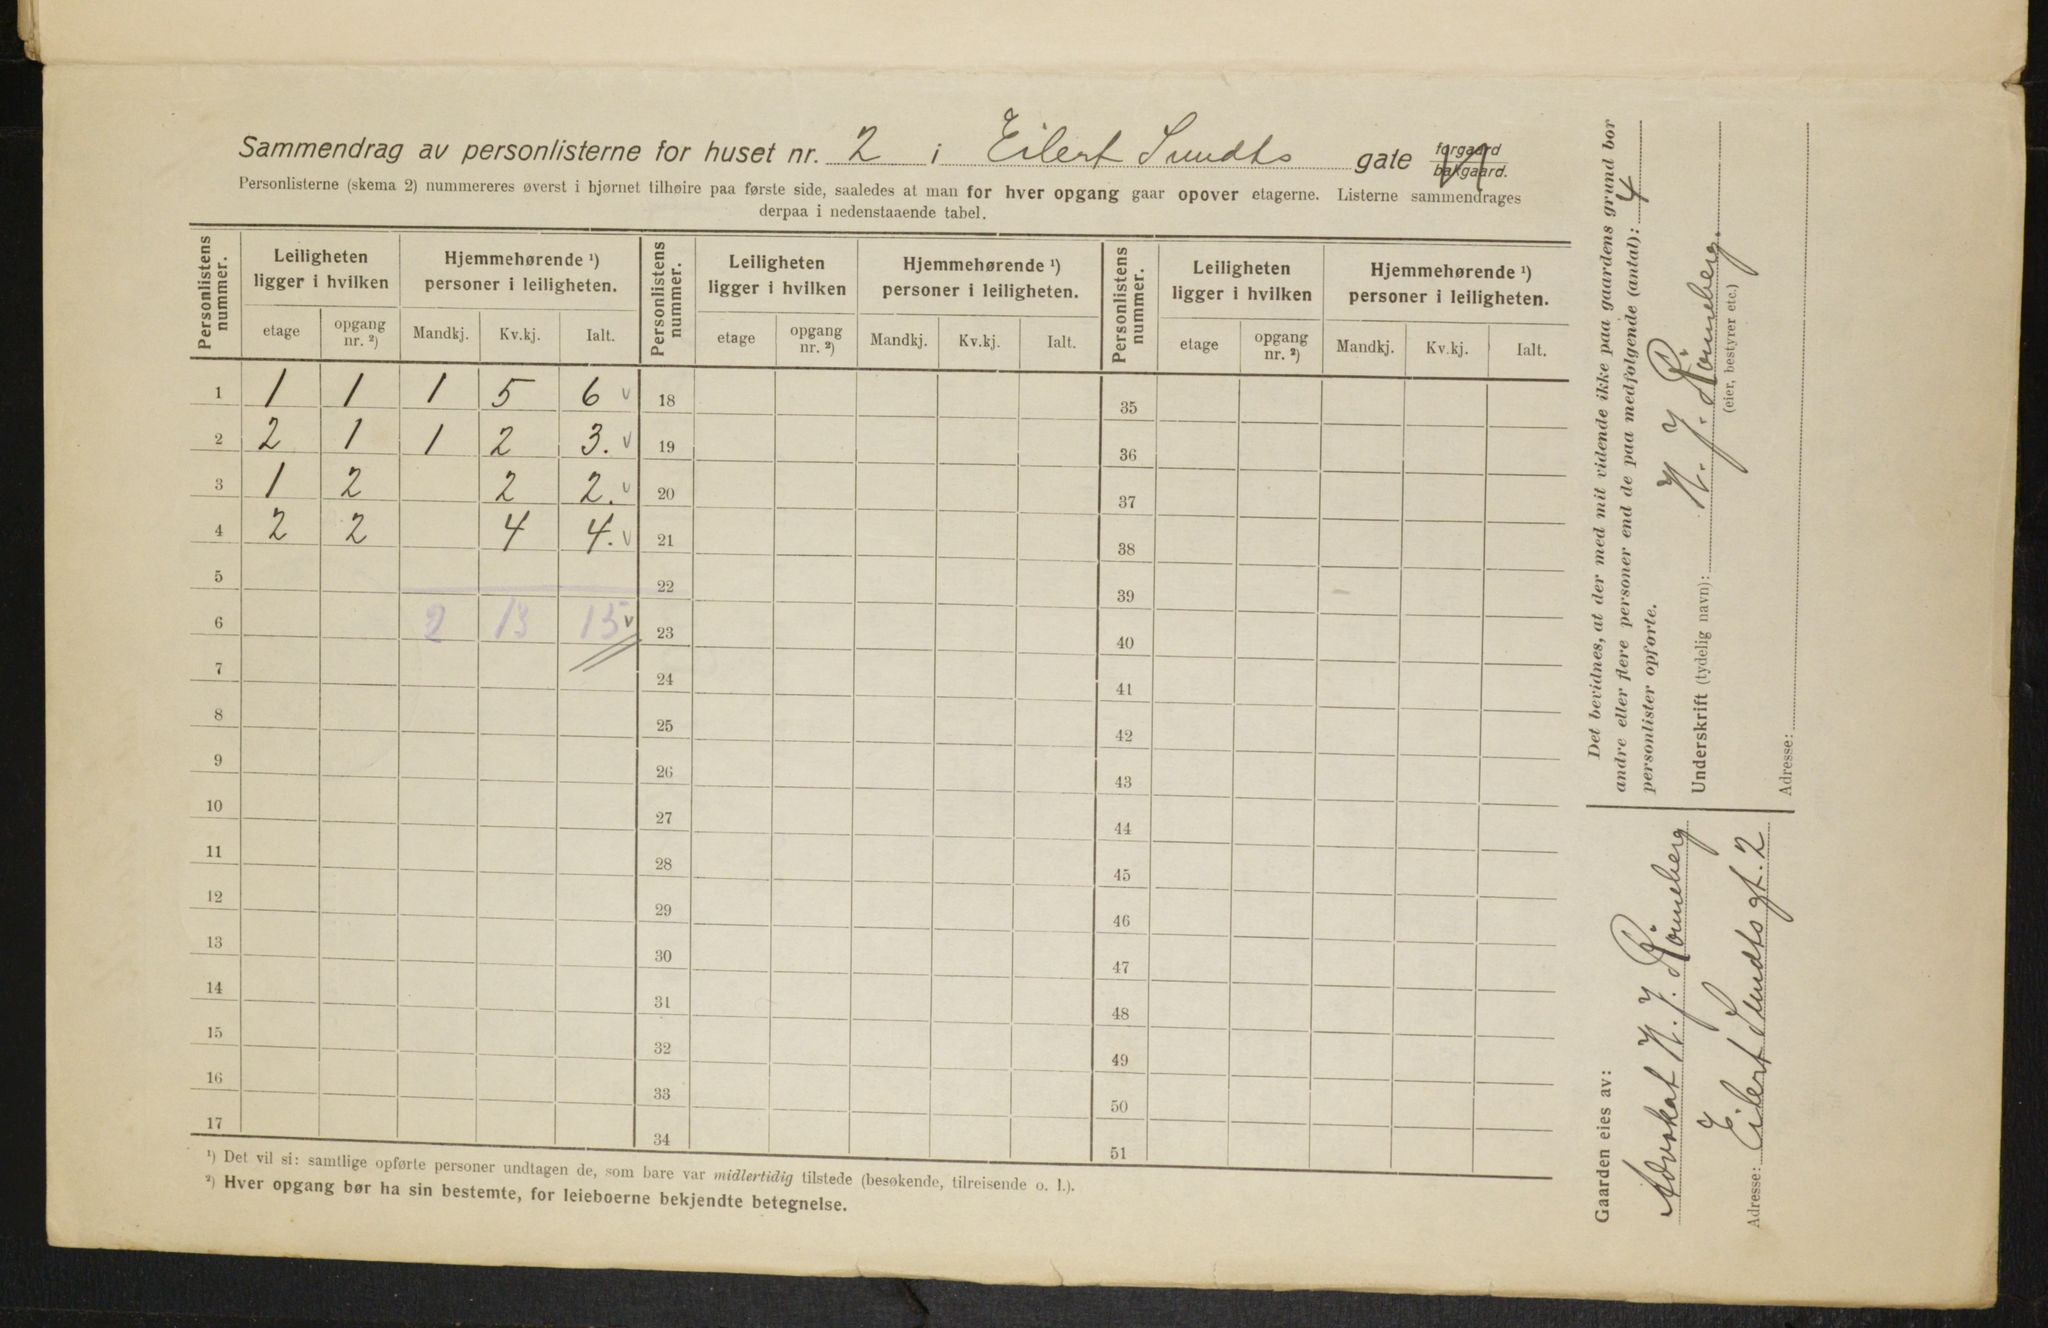 Sammendrag av personlisterne for huset nr. 2 i Eilert Sundts gate forgaard bakgaard.
Personlisterne (skema 2) nummereres øverst i hjørnet tilhøire paa første side, saaledes at man for hver opgang gaar opover etagerne. Listerne sammendrages
derpaa i nedenstaaende tabel.
Personlistens nummer. Leiligheten ligger i hvilken Hjemmehørende ¹) personer i leiligheten. Personlistens nummer. Leiligheten ligger i hvilken Hjemmehørende ¹) personer i leiligheten. Personlistens nummer. Leiligheten ligger i hvilken Hjemmehørende ¹) personer i leiligheten.
etage opgang nr. ²) Mandkj. Kv.kj. Ialt. etage opgang nr. ²) Mandkj. Kv.kj. Ialt. etage opgang nr. ²) Mandkj. Kv.kj. Ialt.
1 1 1 1 5 6 v 18 35
2 2 1 1 2 3. v 19 36
3 1 2 2 2. v 20 37
4 2 2 4 4. v 21 38
5 22 39
6 2 13 15 v 23 40
7 24 41
8 25 42
9 26 43
10 27 44
11 28 45
12 29 46
13 30 47
14 31 48
15 32 49
16 33 50
17 34 51
¹) Det vil si: samtlige opførte personer undtagen de, som bare var midlertidig tilstede (besøkende, tilreisende o. l.).
²) Hver opgang bør ha sin bestemte, for leieboerne bekjendte betegnelse.
Det bevidnes, at der med mit vidende ikke paa gaardens grund bor
andre eller flere personer end de paa medfølgende (antal): 4
personlister opførte.
Underskrift (tydelig navn): N. J. Römeberg.
(eier, bestyrer etc.)
Adresse:
Gaarden eies av:
Advokat N. J. Römeberg
Adresse: Eilert Sundts gt. 2